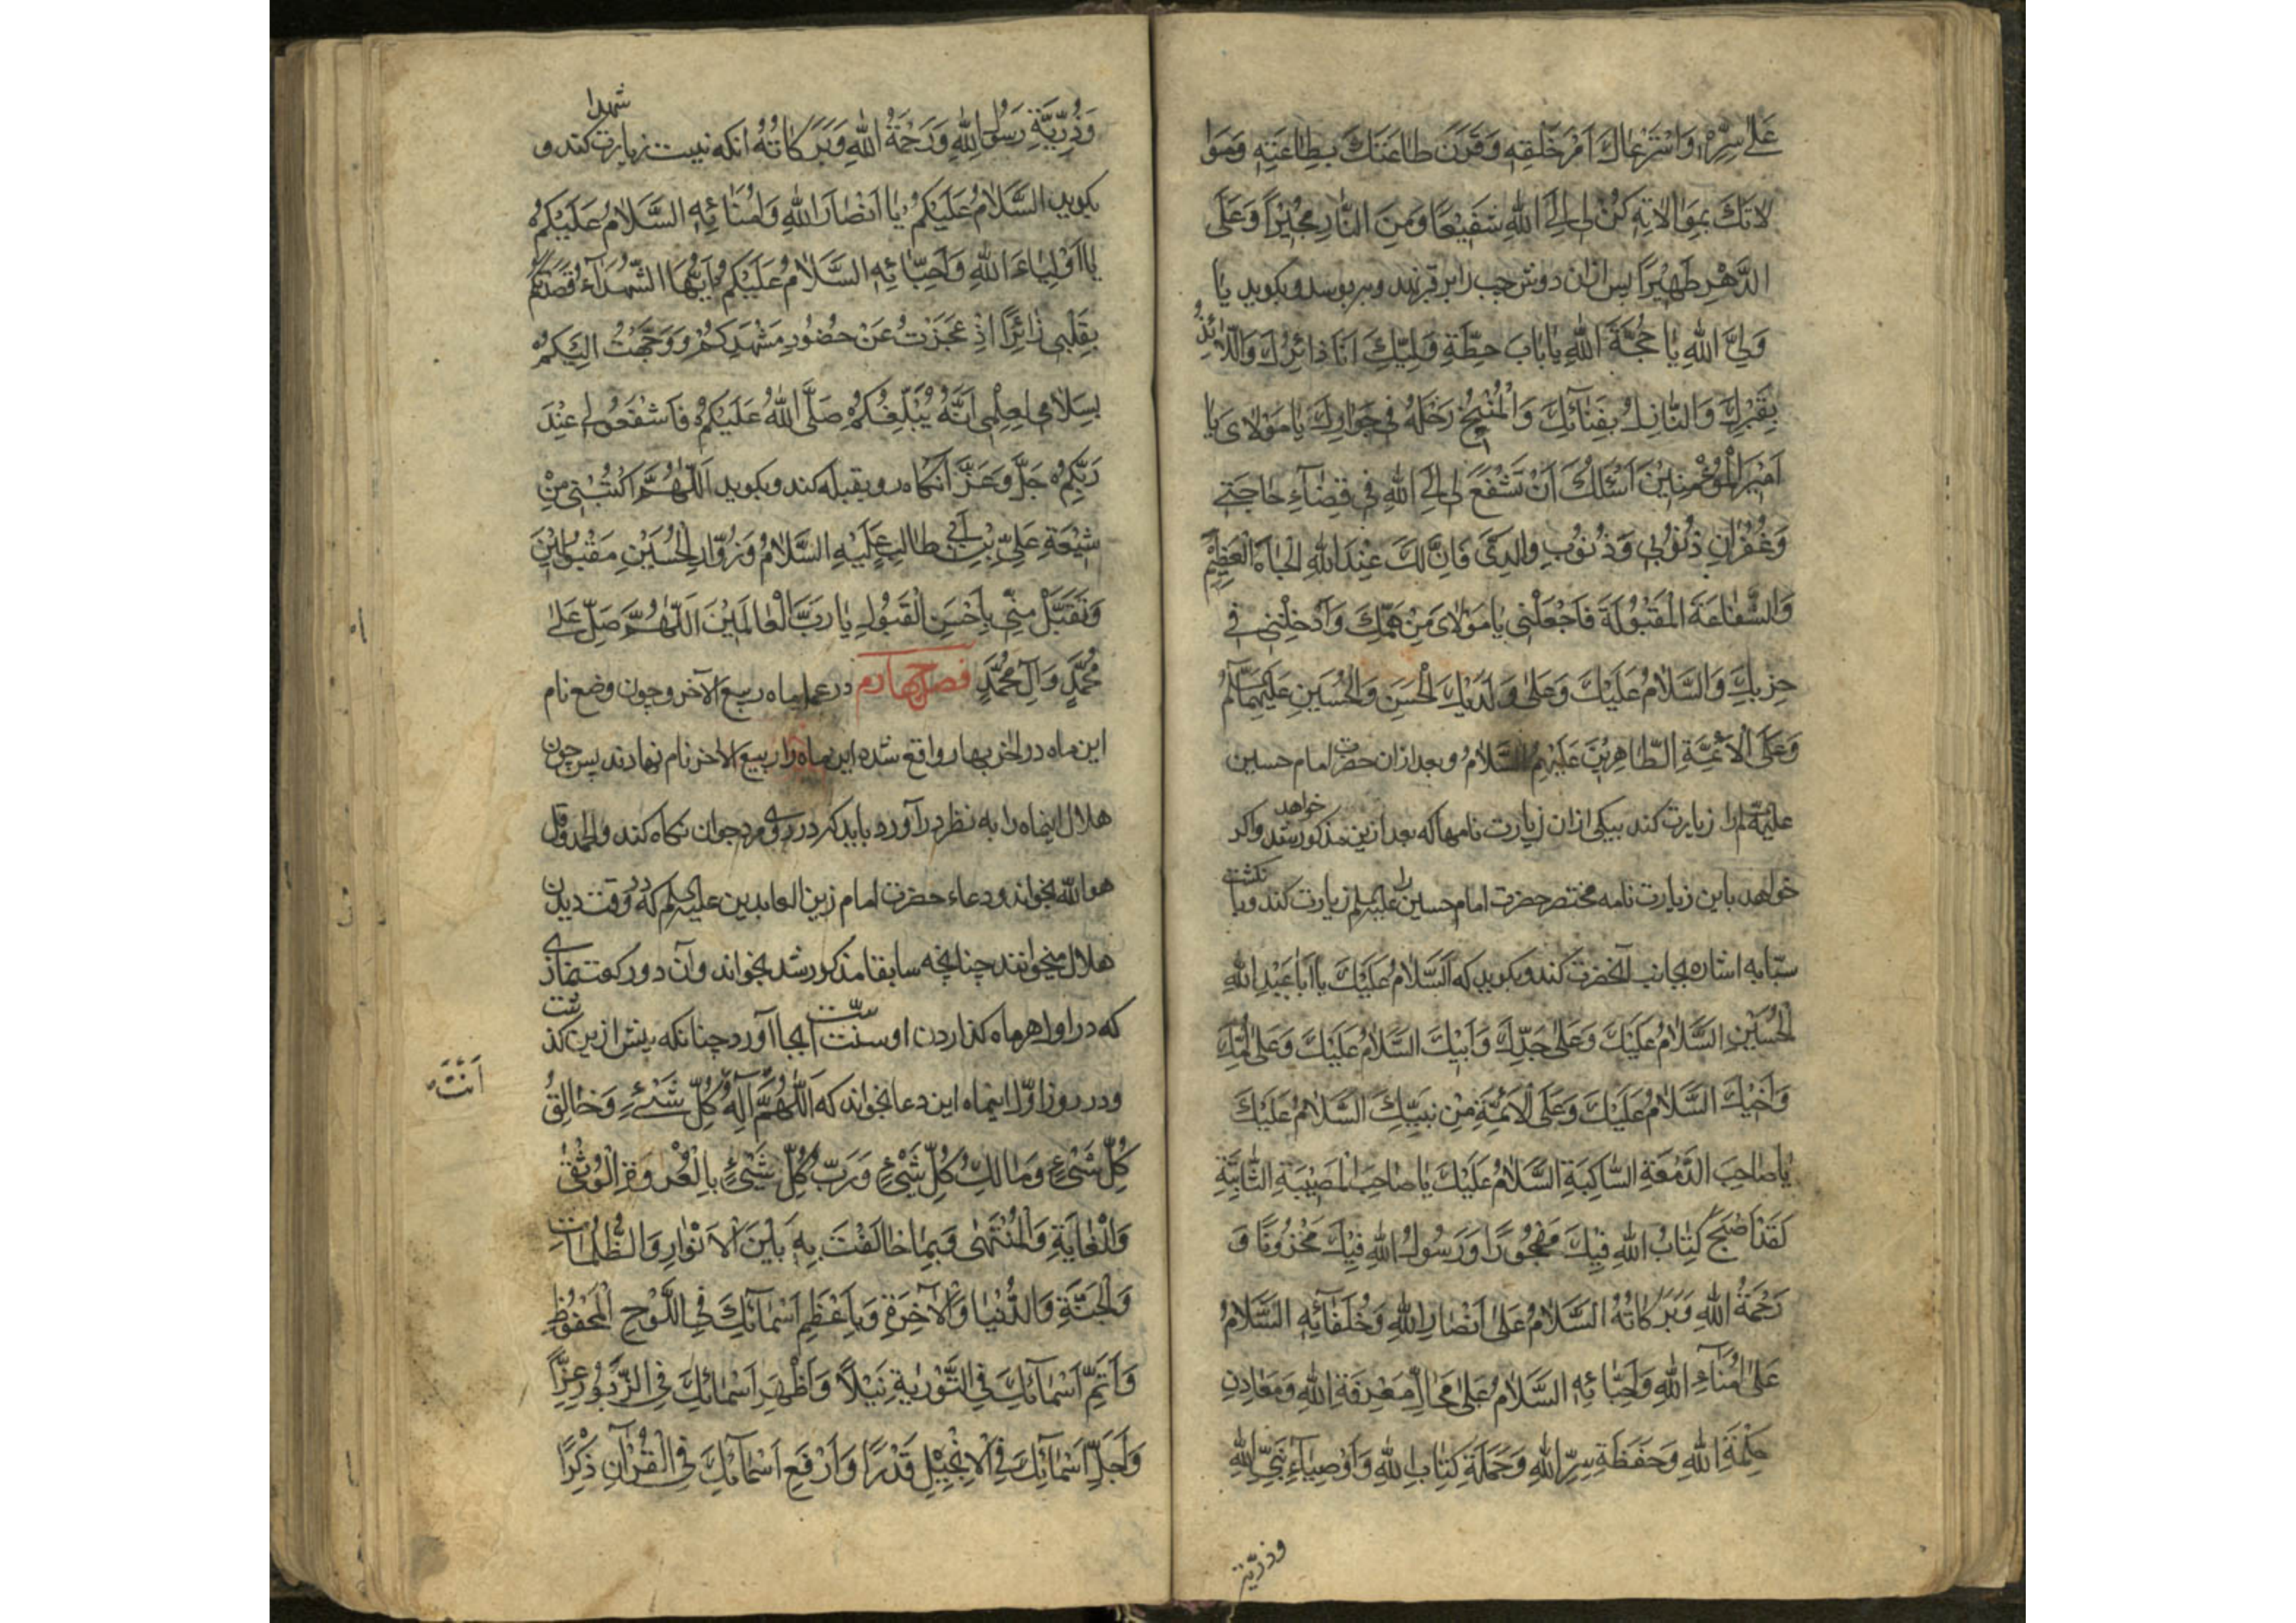 عَلىٰ سِرِّهِ وَاسْتَرْعاكَ اَمْرَ خَلْقِهِ وَقَرَنَ طاعَتَكَ بِطاعَتِهِ وَمُوا
لاتَكَ بِمُوالاتِهِ كُنْ لى اِلَى اللهِ شَفِيْعًا وَمِنَ النّارِ مُجِيْرًا وَعَلَى
الدَّهْرِ ظَهِيْرًا پس ازان دوش چپ را بر قبر نهد و ببوسد و بكويد يا
وَلِىَّ اللهِ يا حُجَّةَ اللهِ يا بابَ حِطَّةِ وَلِيِّكَ اَنَا زائِرُكَ وَاللّائِذُ
بِقَبْرِكَ وَالنّازِلُ بِفِنائِكَ وَالْمُنِيْخُ رَحْلَهُ فى جِوارِكَ يا مَوْلاىَ يا
اَمِيْرَ الْمُؤْمِنِيْنَ اَسْئَلُكَ اَنْ تَشْفَعَ لى اِلَى اللهِ فى قَضاءِ حاجَتى
وَغُفْرانِ ذُنُوْبى وَذُنُوْبِ والِدَىَّ فَاِنَّ لَكَ عِنْدَ اللهِ الْجاهَ الْعَظِيْمَ
وَالشَّفاعَةَ الْمَقْبُوْلَةَ فَاجْعَلْنى يا مَوْلاىَ مِنْ هَمِّكَ وَاَدْخِلْنى فى
حِزْبِكَ وَالسَّلامُ عَلَيْكَ وَعَلىٰ وَلَدَيْكَ الْحَسَنِ وَالْحُسَيْنِ عَلَيْهِمَا السَّلامُ
وَعَلَى الْاَئِمَّةِ الطّاهِرِيْنَ عَلَيْهِمُ السَّلامُ و بعد ازان حضرت امام حسين
عليه‌السلم را زيارت كند بيكى ازان زيارت نامها كه بعد ازين مذكور خواهد شد و اكر
خواهد باين زيارت نامه مختصر حضرت امام حسين را عليه‌السلم زيارت كند و با نكشت
سبّابه اشاره بجانب آنحضرت كند و بكويد كه اَلسَّلامُ عَلَيْكَ يا اَبا عَبْدِ اللهِ
الْحُسَيْنِ السَّلامُ عَلَيْكَ وَعَلىٰ جَدِّكَ وَاَبِيْكَ السَّلامُ عَلَيْكَ وَعَلىٰ اُمِّكَ
وَاَخِيْكَ السَّلامُ عَلَيْكَ وَعَلَى الْاَئِمَّةِ مِنْ بَنِيْكَ السَّلامُ عَلَيْكَ
يا صاحِبَ الدَّمْعَةِ السّاكِبَةِ السَّلامُ عَلَيْكَ يا صاحِبَ الْمُصِيْبَةِ الرّاتِبَةِ
لَقَدْ اَصْبَحَ كِتابُ اللهِ فِيْكَ مَهْجُوْرًا وَرَسُوْلُ اللهِ فِيْكَ مَحْزُوْنًا وَ
رَحْمَةُ اللهِ وَبَرَكاتُهُ السَّلامُ عَلىٰ اَنْصارِ اللهِ وَخُلَفائِهِ السَّلامُ
عَلىٰ اُمَناءِ اللهِ وَاَحِبّائِهِ السَّلامُ عَلىٰ مَحالِّ مَعْرِفَةِ اللهِ وَمَعادِنِ
حِكْمَةِ اللهِ وَحَفَظَةِ سِرِّ اللهِ وَحَمَلَةِ كِتابِ اللهِ وَاَوْصِياءِ نَبِىِّ اللهِ
وذرّية
وَذُرِّيَّةِ رَسُوْلِ اللهِ وَرَحْمَةُ اللهِ وَبَرَكاتُهُ انكه نيت زيارت شهدا كند و
بكويد السَّلامُ عَلَيْكُمْ يا اَنْصارَ اللهِ وَاُمَنائِهِ السَّلامُ عَلَيْكُمْ
يا اَوْلِياءَ اللهِ وَاَحِبّائِهِ السَّلامُ عَلَيْكُمْ اَيُّهَا الشُّهَداءُ قَصَدْتُكُمْ
بِقَلْبى زائِرًا اِذْ عَجَزْتُ عَنْ حُضُوْرِ مَشْهَدِكُمْ وَوَجَّهْتُ اِلَيْكُمْ
بِسَلامى لِعِلْمى اَنَّهُ يُبْلِغُكُمْ صَلَّى اللهُ عَلَيْكُمْ فَاشْفَعُوْا لى عِنْدَ
رَبِّكُمْ جَلَّ وَعَزَّ آنكاه رو بقبله كند و بكويد اَللّهُمَّ اكْتُبْنى مِنْ
شِيْعَةِ عَلِىِّ بْنِ اَبى طالِبٍ عَلَيْهِ السَّلامُ وَزُوّارِ الْحُسَيْنِ مَقْبُوْلِيْنَ
وَتَقَبَّلْ مِنّى بِاَحْسَنِ الْقَبُوْلِ يا رَبَّ الْعالَمِيْنَ اَللّهُمَّ صَلِّ عَلىٰ
مُحَمَّدٍ وَآلِ مُحَمَّدٍ فصل چهارم در عمل ماه ربيع الآخر و چون وضع نام
اين ماه در اخر بهار واقع شده اين ماه را ربيع الاخر نام نهادند پس چون
هلال اينماه را به نظر درآورد بايد كه در روى مرد جوان نكاه كند و الحمد و قل
هو الله بخواند و دعاء حضرت امام زين العابدين عليه‌السلم كه در وقت ديدن
هلال ميخوانند چنانچه سابقا مذكور شد بخواند و آن دو ركعت نمازى
كه در اول هر ماه كذاردن او سنّت است بجا آورد چنانكه پيش ازين كذشت
و در روز اوّل اينماه اين دعا بخواند كه اَللّهُمَّ اِلٰهُ كُلِّ شَىْءٍ وَخالِقُ
اَنْتَ
كُلِّ شَىْءٍ وَمالِكُ كُلِّ شَىْءٍ وَرَبُّ كُلِّ شَىْءٍ بِالْعُرْوَةِ الْوُثْقىٰ
وَالْغايَةِ وَالْمُنْتَهىٰ وَبِما خالَفْتَ بِهِ بَيْنَ الْاَنْوارِ وَالظُّلُماتِ
وَالْجَنَّةِ وَالدُّنْيا وَالْآخِرَةِ وَبِاَعْظَمِ اَسْمائِكَ فِى اللَّوْحِ الْمَحْفُوْظِ
وَاَتَمِّ اَسْمائِكَ فِى التَّوْرٰيةِ نَيْلًا وَاَظْهَرِ اَسْمائِكَ فِى الزَّبُوْرِ عِزًّا
وَاَجَلِّ اَسْمائِكَ فِى الْاِنْجِيْلِ قَدْرًا وَاَرْفَعِ اَسْمائِكَ فِى الْقُرْآنِ ذِكْرًا